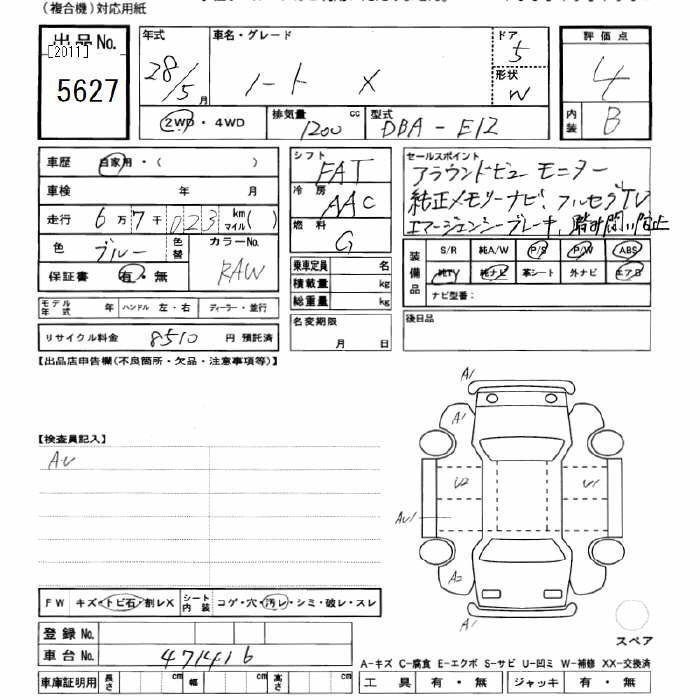 （複合機）対応用紙
出品No.
[2011]
5627
年式
28/5月
車名・グレード
ノート X
ドア
5
形状
W
評価点
4
内装
B
2WD・4WD
排気量 1200 cc
型式 DBA-E12
車歴 自家用・( )
車検 年 月
走行 6万7千023 km マイル( )
色 ブルー
色替
カラーNo. RAW
保証書 有・無
シフト FAT
冷房 AAC
燃料 G
乗車定員 名
積載量 kg
総重量 kg
セールスポイント
アラウンドビューモニター
純正メモリーナビ、フルセグTV
エマージェンシーブレーキ、
装備品
S/R 純A/W P/S P/W ABS
純TV 純ナビ 革シート 外ナビ エアB
ナビ型番：
モデル年式 年 ハンドル 左・右 ディーラー・並行
リサイクル料金 8510 円 預託済
名変期限 月 日
後日品
【出品店申告欄(不良箇所・欠品・注意事項等)】
【検査員記入】
AU
A1
A1
U2
U1
AU1
A2
A1
スペア
FW キズ・トビ石・割レX
シート内装 コゲ・穴・汚レ・シミ・破レ・スレ
登録No.
車台No. 471416
車庫証明用 長さ cm 幅 cm 高さ cm
A-キズ C-腐食 E-エクボ S-サビ U-凹ミ W-補修 XX-交換済
工具 有・無 ジャッキ 有・無